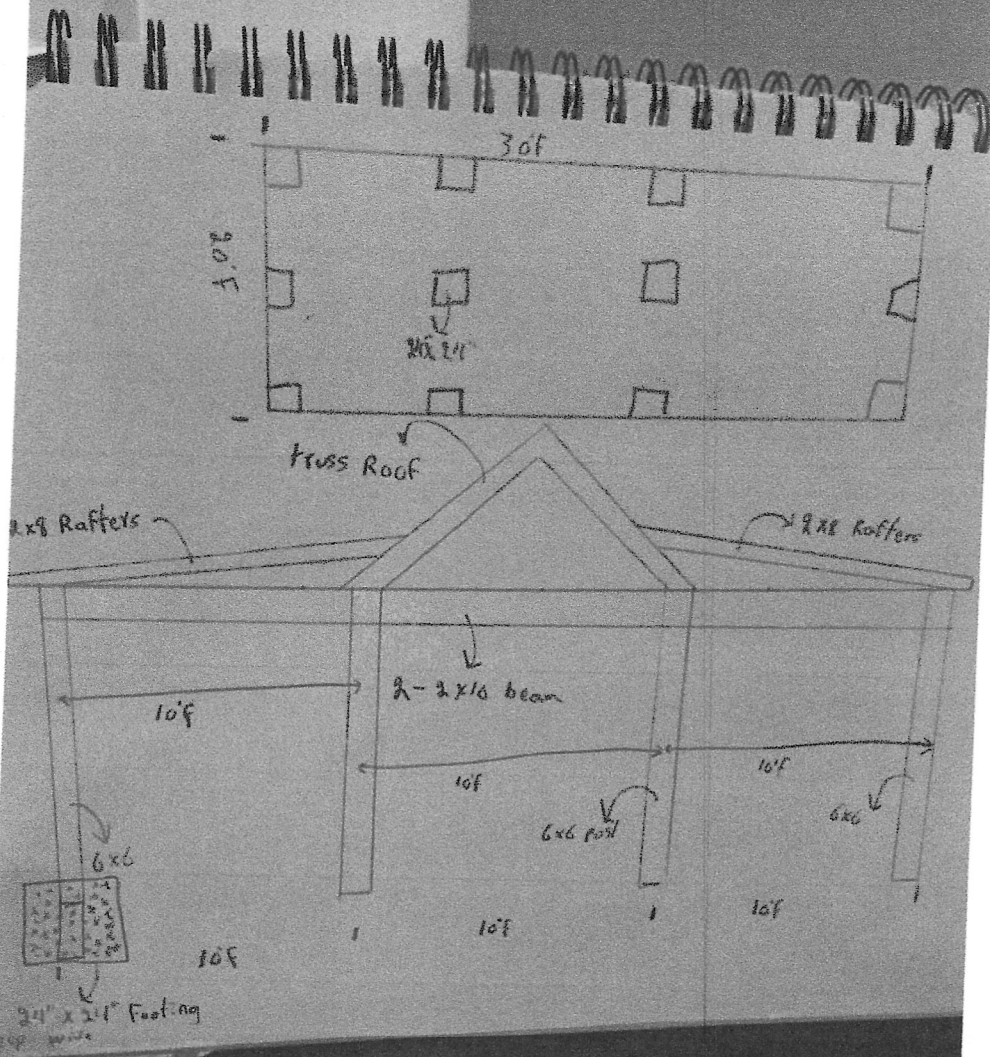 30f
20f
truss Roof
2x8 Rafters
2x8 Rafters
2-2x10 beam
10f
10f
10f
6x6 post
6x6
6x6
10f
10f
10f
24" x 24" Footing